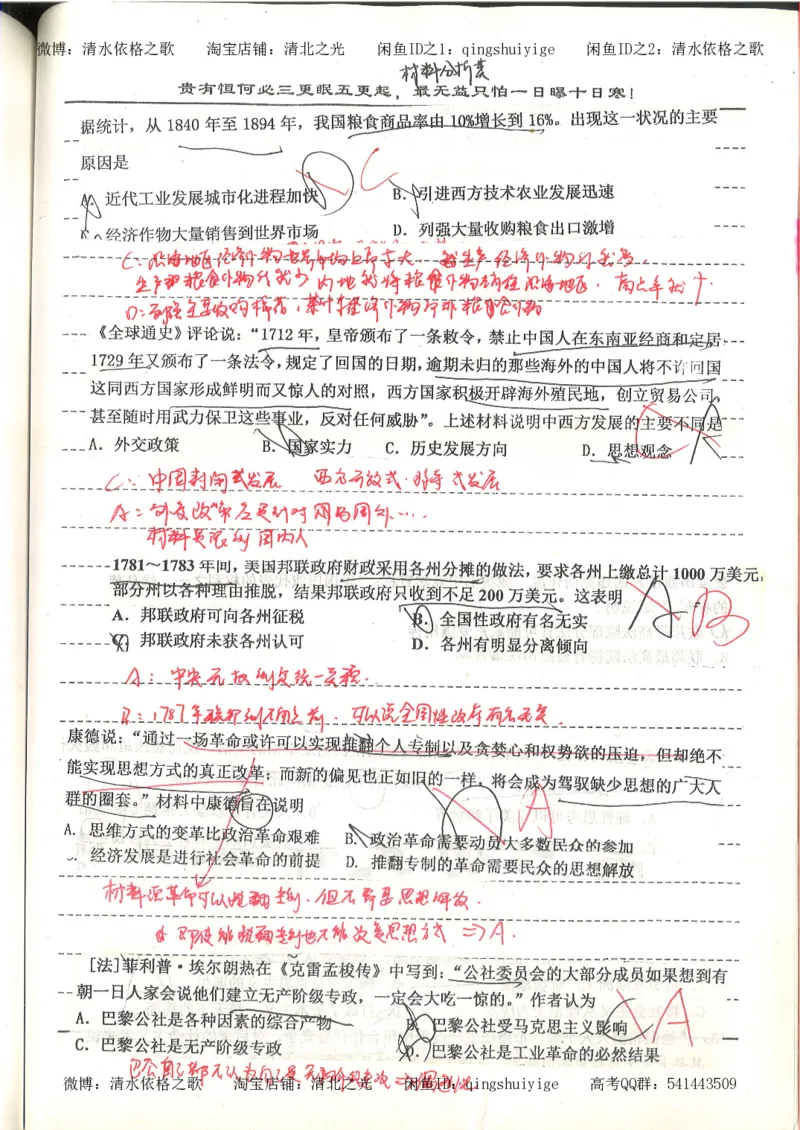 微博：清水依格之歌 淘宝店铺：清北之光 闲鱼ID之1：qingshuiyige 闲鱼ID之2：清水依格之歌
材料分析类
贵有恒何必三更眠五更起，最无益只怕一日曝十日寒！
据统计，从 1840 年至 1894 年，我国粮食商品率由 10%增长到 16%。出现这一状况的主要
原因是
A. 近代工业发展城市化进程加快 B. 引进西方技术农业发展迅速
C. 经济作物大量销售到世界市场 D. 列强大量收购粮食出口激增
D C
《全球通史》评论说：“1712 年，皇帝颁布了一条敕令，禁止中国人在东南亚经商和定居
1729 年又颁布了一条法令，规定了回国的日期，逾期未归的那些海外的中国人将不许回国
这同西方国家形成鲜明而又惊人的对照，西方国家积极开辟海外殖民地，创立贸易公司，
甚至随时用武力保卫这些事业，反对任何威胁”。上述材料说明中西方发展的主要不同是
A．外交政策 B．国家实力 C．历史发展方向 D．思想观念
C A
C：中国封闭式发展 西方开放式
材料是限制国内人
1781～1783 年间，美国邦联政府财政采用各州分摊的做法，要求各州上缴总计 1000 万美元，
部分州以各种理由推脱，结果邦联政府只收到不足 200 万美元。这表明
A．邦联政府可向各州征税 B．全国性政府有名无实
C．邦联政府未获各州认可 D．各州有明显分离倾向
A B
B：1787年联邦制不同之前，可以说全国性政府有名无实．
康德说：“通过一场革命或许可以实现推翻个人专制以及贪婪心和权势欲的压迫，但却绝不
能实现思想方式的真正改革；而新的偏见也正如旧的一样，将会成为驾驭缺少思想的广大人
群的圈套。”材料中康德旨在说明
A．思维方式的变革比政治革命艰难 B．政治革命需要动员大多数民众的参加
C．经济发展是进行社会革命的前提 D．推翻专制的革命需要民众的思想解放
D A
即使能推翻专制也不能改变思想方式 ⇒A．
[法]菲利普·埃尔朗热在《克雷孟梭传》中写到：“公社委员会的大部分成员如果想到有
朝一日人家会说他们建立无产阶级专政，一定会大吃一惊的。”作者认为
A．巴黎公社是各种因素的综合产物 B．巴黎公社受马克思主义影响
C．巴黎公社是无产阶级专政 D．巴黎公社是工业革命的必然结果
C A
微博：清水依格之歌 淘宝店铺：清北之光 闲鱼ID：qingshuiyige 高考QQ群：541443509